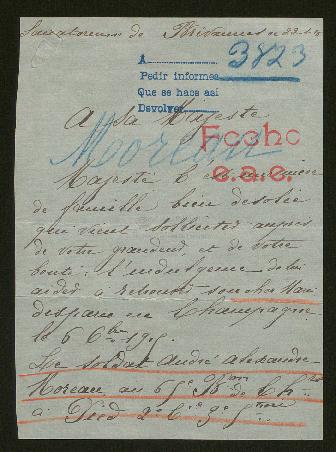 Sanatorium de
3823
A
Pedir informes
Que se hace así
Devolver
A Sa Majesté
Moreau
Fecho
c.a.e.
Majesté C'est une mère
de famille bien désolée
qui vient solliciter auprès
de votre grandeur, et de votre
bonté l'indulgence de lui
aider à retrouver son cher Mari
disparu en Champagne
le 6 8bre 1915.
Le soldat André Alexandre
Moreau au 65e Bon de Ch
à Pied 2e Cie 9e